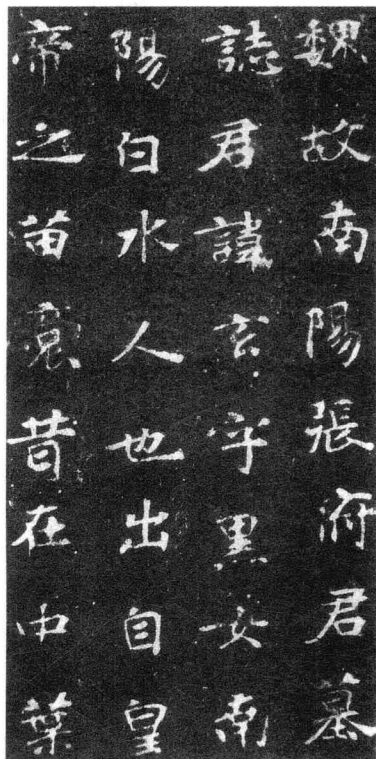 魏故南陽張府君墓
誌君諱玄字黑女南
陽白水人也出自皇
帝之苗裔昔在中葉